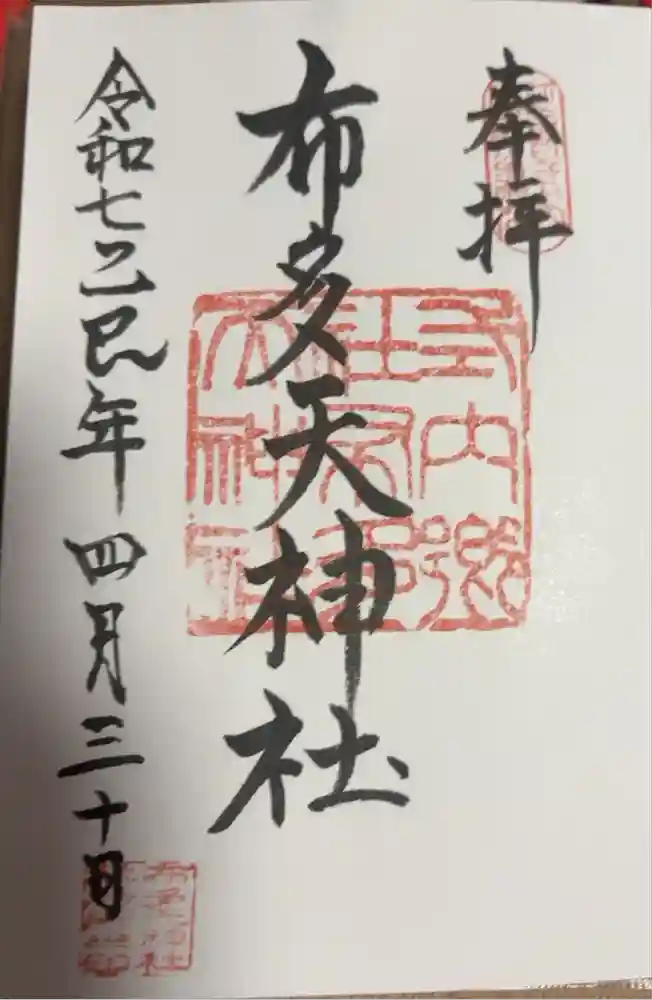 奉拝
布多天神社
令和七乙巳年四月三十日
式内郷社布多天神社